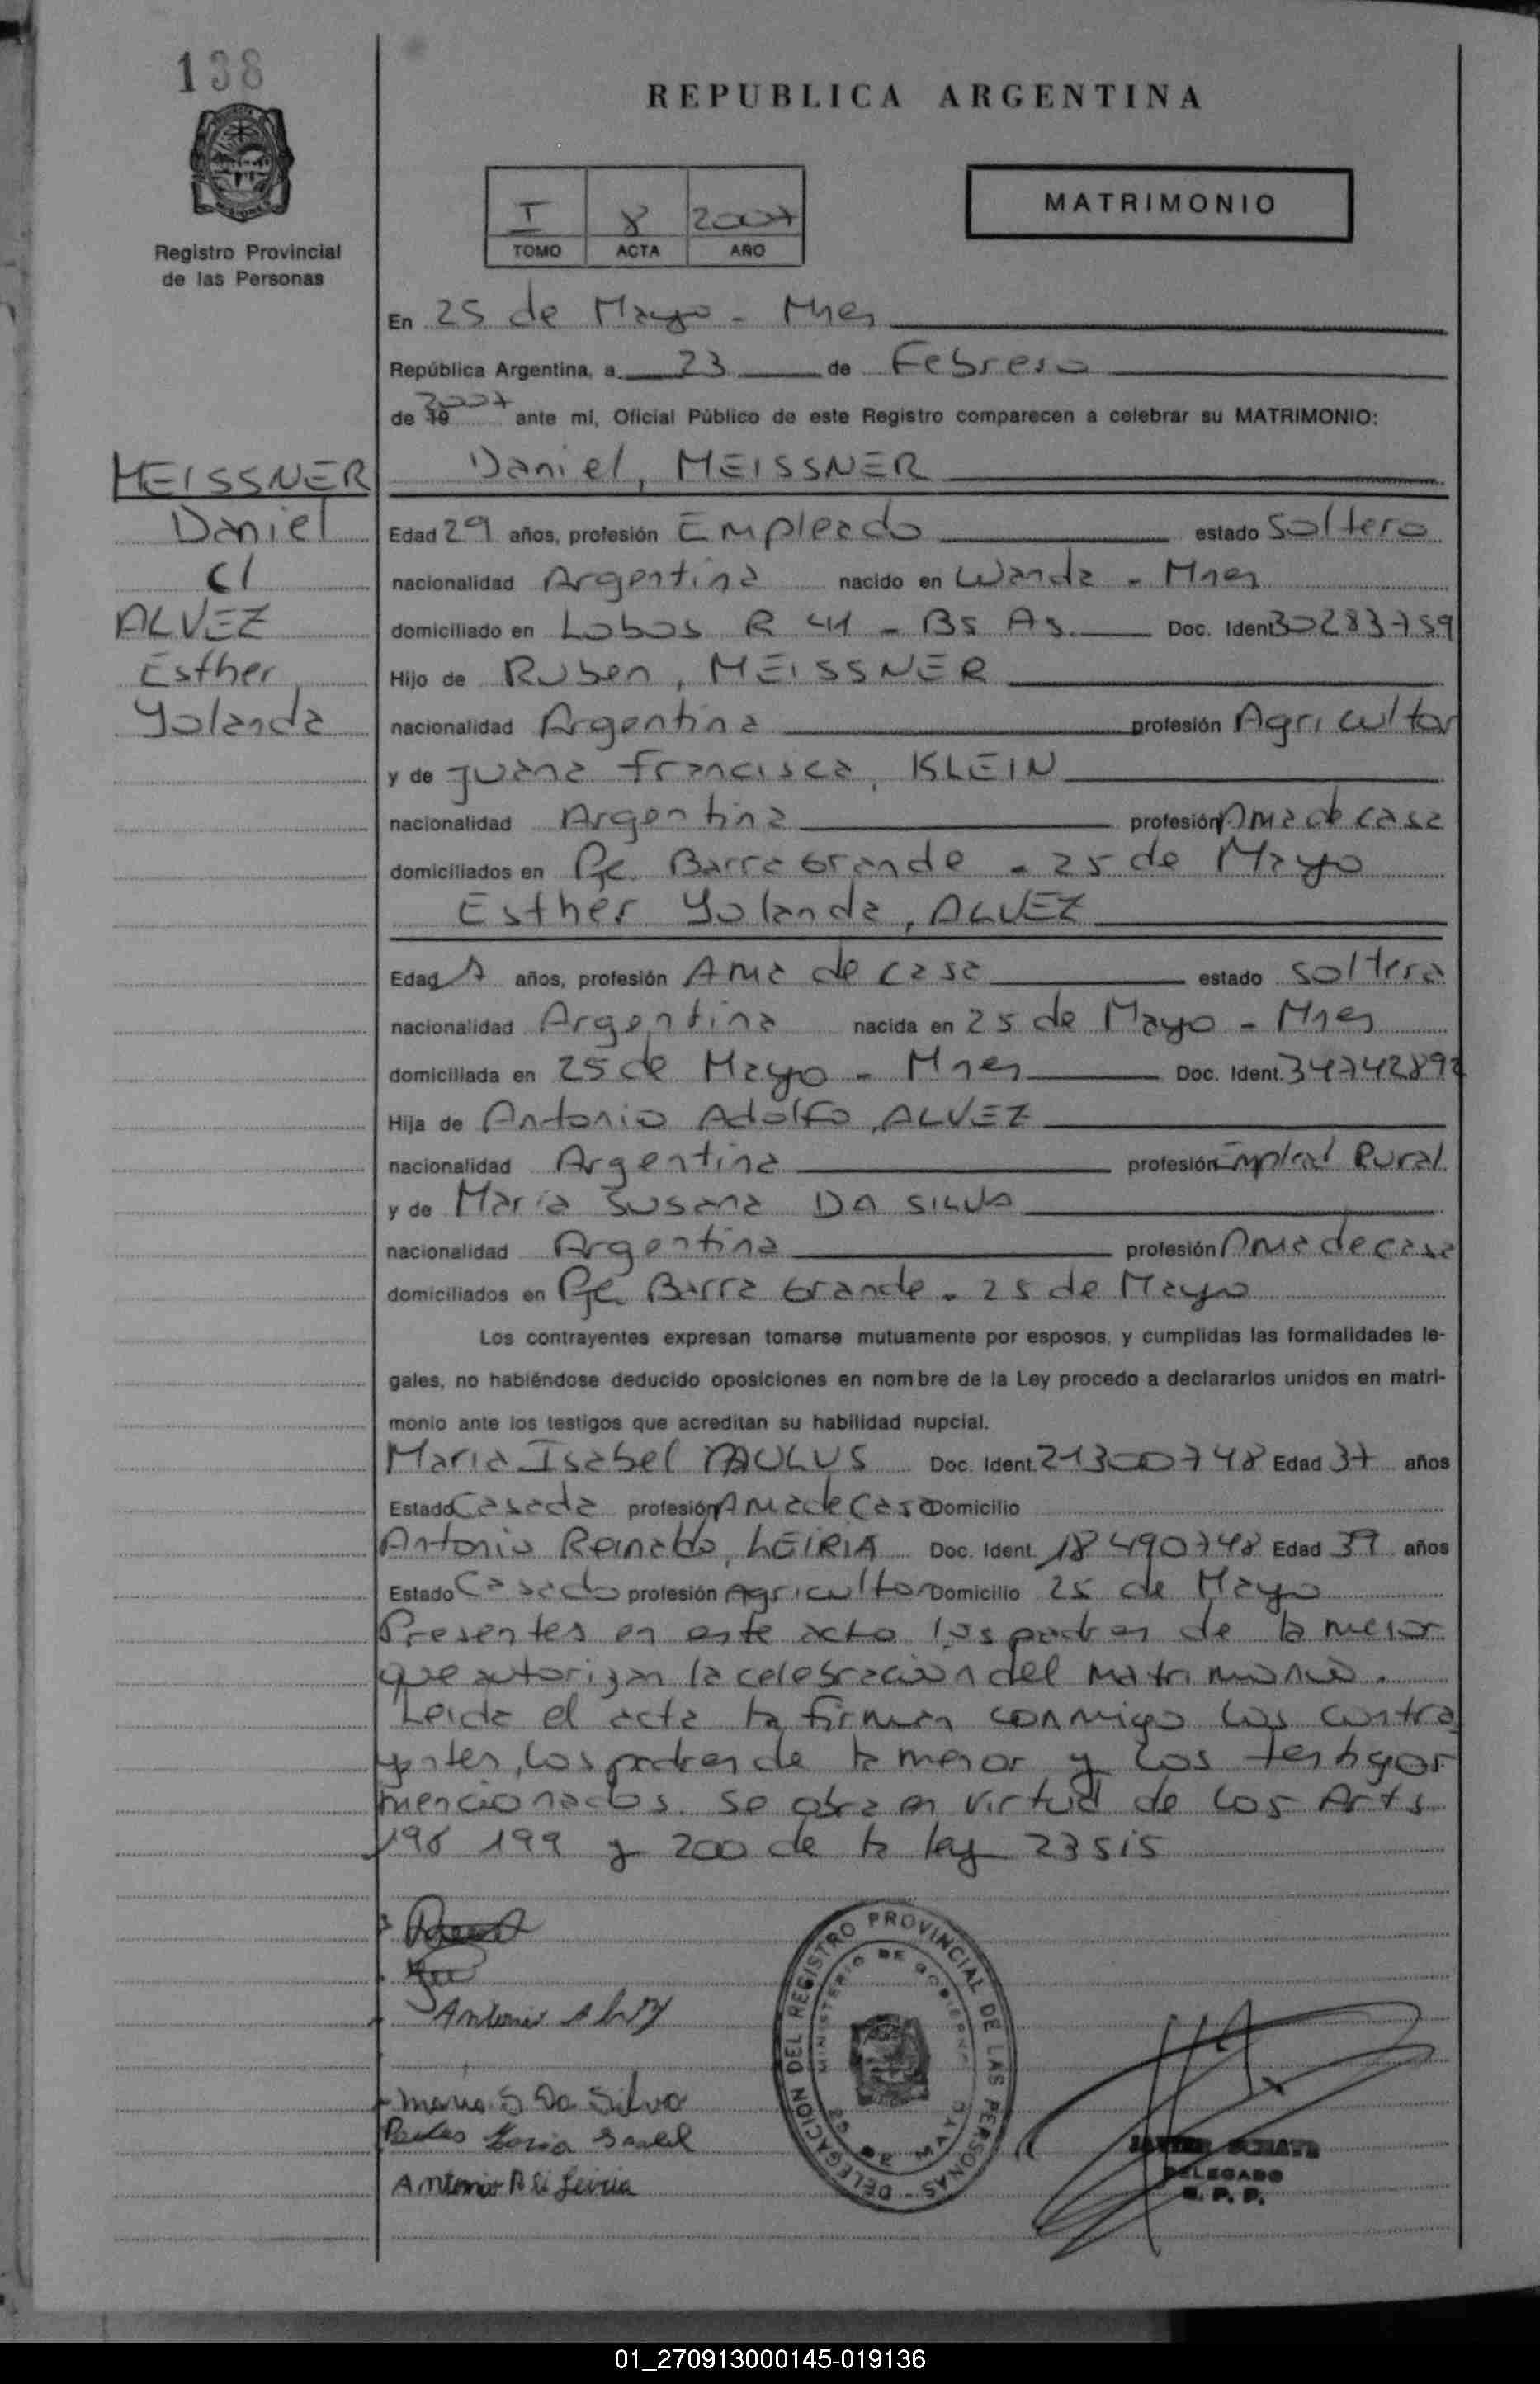 138
REPUBLICA ARGENTINA
MATRIMONIO
I 8 2007
TOMO ACTA AÑO
Registro Provincial
de las Personas
En 25 de Mayo - Mnes
República Argentina, a 23 de Febrero
de 19 2007 ante mi, Oficial Público de este Registro comparecen a celebrar su MATRIMONIO:
MEISSNER
Daniel
c/
ALVEZ
Esther
Yolanda
Daniel, MEISSNER
Edad 29 años, profesión Empleado estado Soltero
nacionalidad Argentina nacido en Wanda - Mnes
domiciliado en Lobos R 41 - Bs As. Doc. Ident 30283759
Hijo de Ruben, MEISSNER
nacionalidad Argentina profesión Agricultor
y de Juana Francisca, KLEIN
nacionalidad Argentina profesión Ama de casa
domiciliados en Pje. Barra Grande - 25 de Mayo
Esther Yolanda, ALVEZ
Edad años, profesión Ama de casa estado soltera
nacionalidad Argentina nacida en 25 de Mayo - Mnes
domiciliada en 25 de Mayo - Mnes Doc. Ident. 34742892
Hija de Antonio Adolfo, ALVEZ
nacionalidad Argentina profesión Emplead Rural
y de Maria Susana DA SILVA
nacionalidad Argentina profesión Ama de casa
domiciliados en Pje. Barra Grande - 25 de Mayo
Los contrayentes expresan tomarse mutuamente por esposos, y cumplidas las formalidades le-
gales, no habiéndose deducido oposiciones en nombre de la Ley procedo a declararlos unidos en matri-
monio ante los testigos que acreditan su habilidad nupcial.
Maria Isabel PAULUS Doc. Ident. 21300748 Edad 37 años
Estado Casada profesión Ama de Casa Domicilio
Antonio Reinaldo, LEIRIA Doc. Ident. 18490748 Edad 39 años
Estado Casado profesión Agricultor Domicilio 25 de Mayo
Presentes en este acto los padres de la menor
que autorizan la celebracion del matrimonio.
Leida el acta la firman conmigo los contra
yentes, los padres de la menor y los testigos
mencionados. Se obra en virtud de los Arts
198 199 y 200 de la ley 23515
Antonio Alvez
Maria S Da Silva
Paulus Maria Isabel
Antonio R Leiria
DELEGACION DEL REGISTRO PROVINCIAL DE LAS PERSONAS -
MINISTERIO DE GOBIERNO
25 DE MAYO
DELEGADO
R. P. P.
01_270913000145-019136